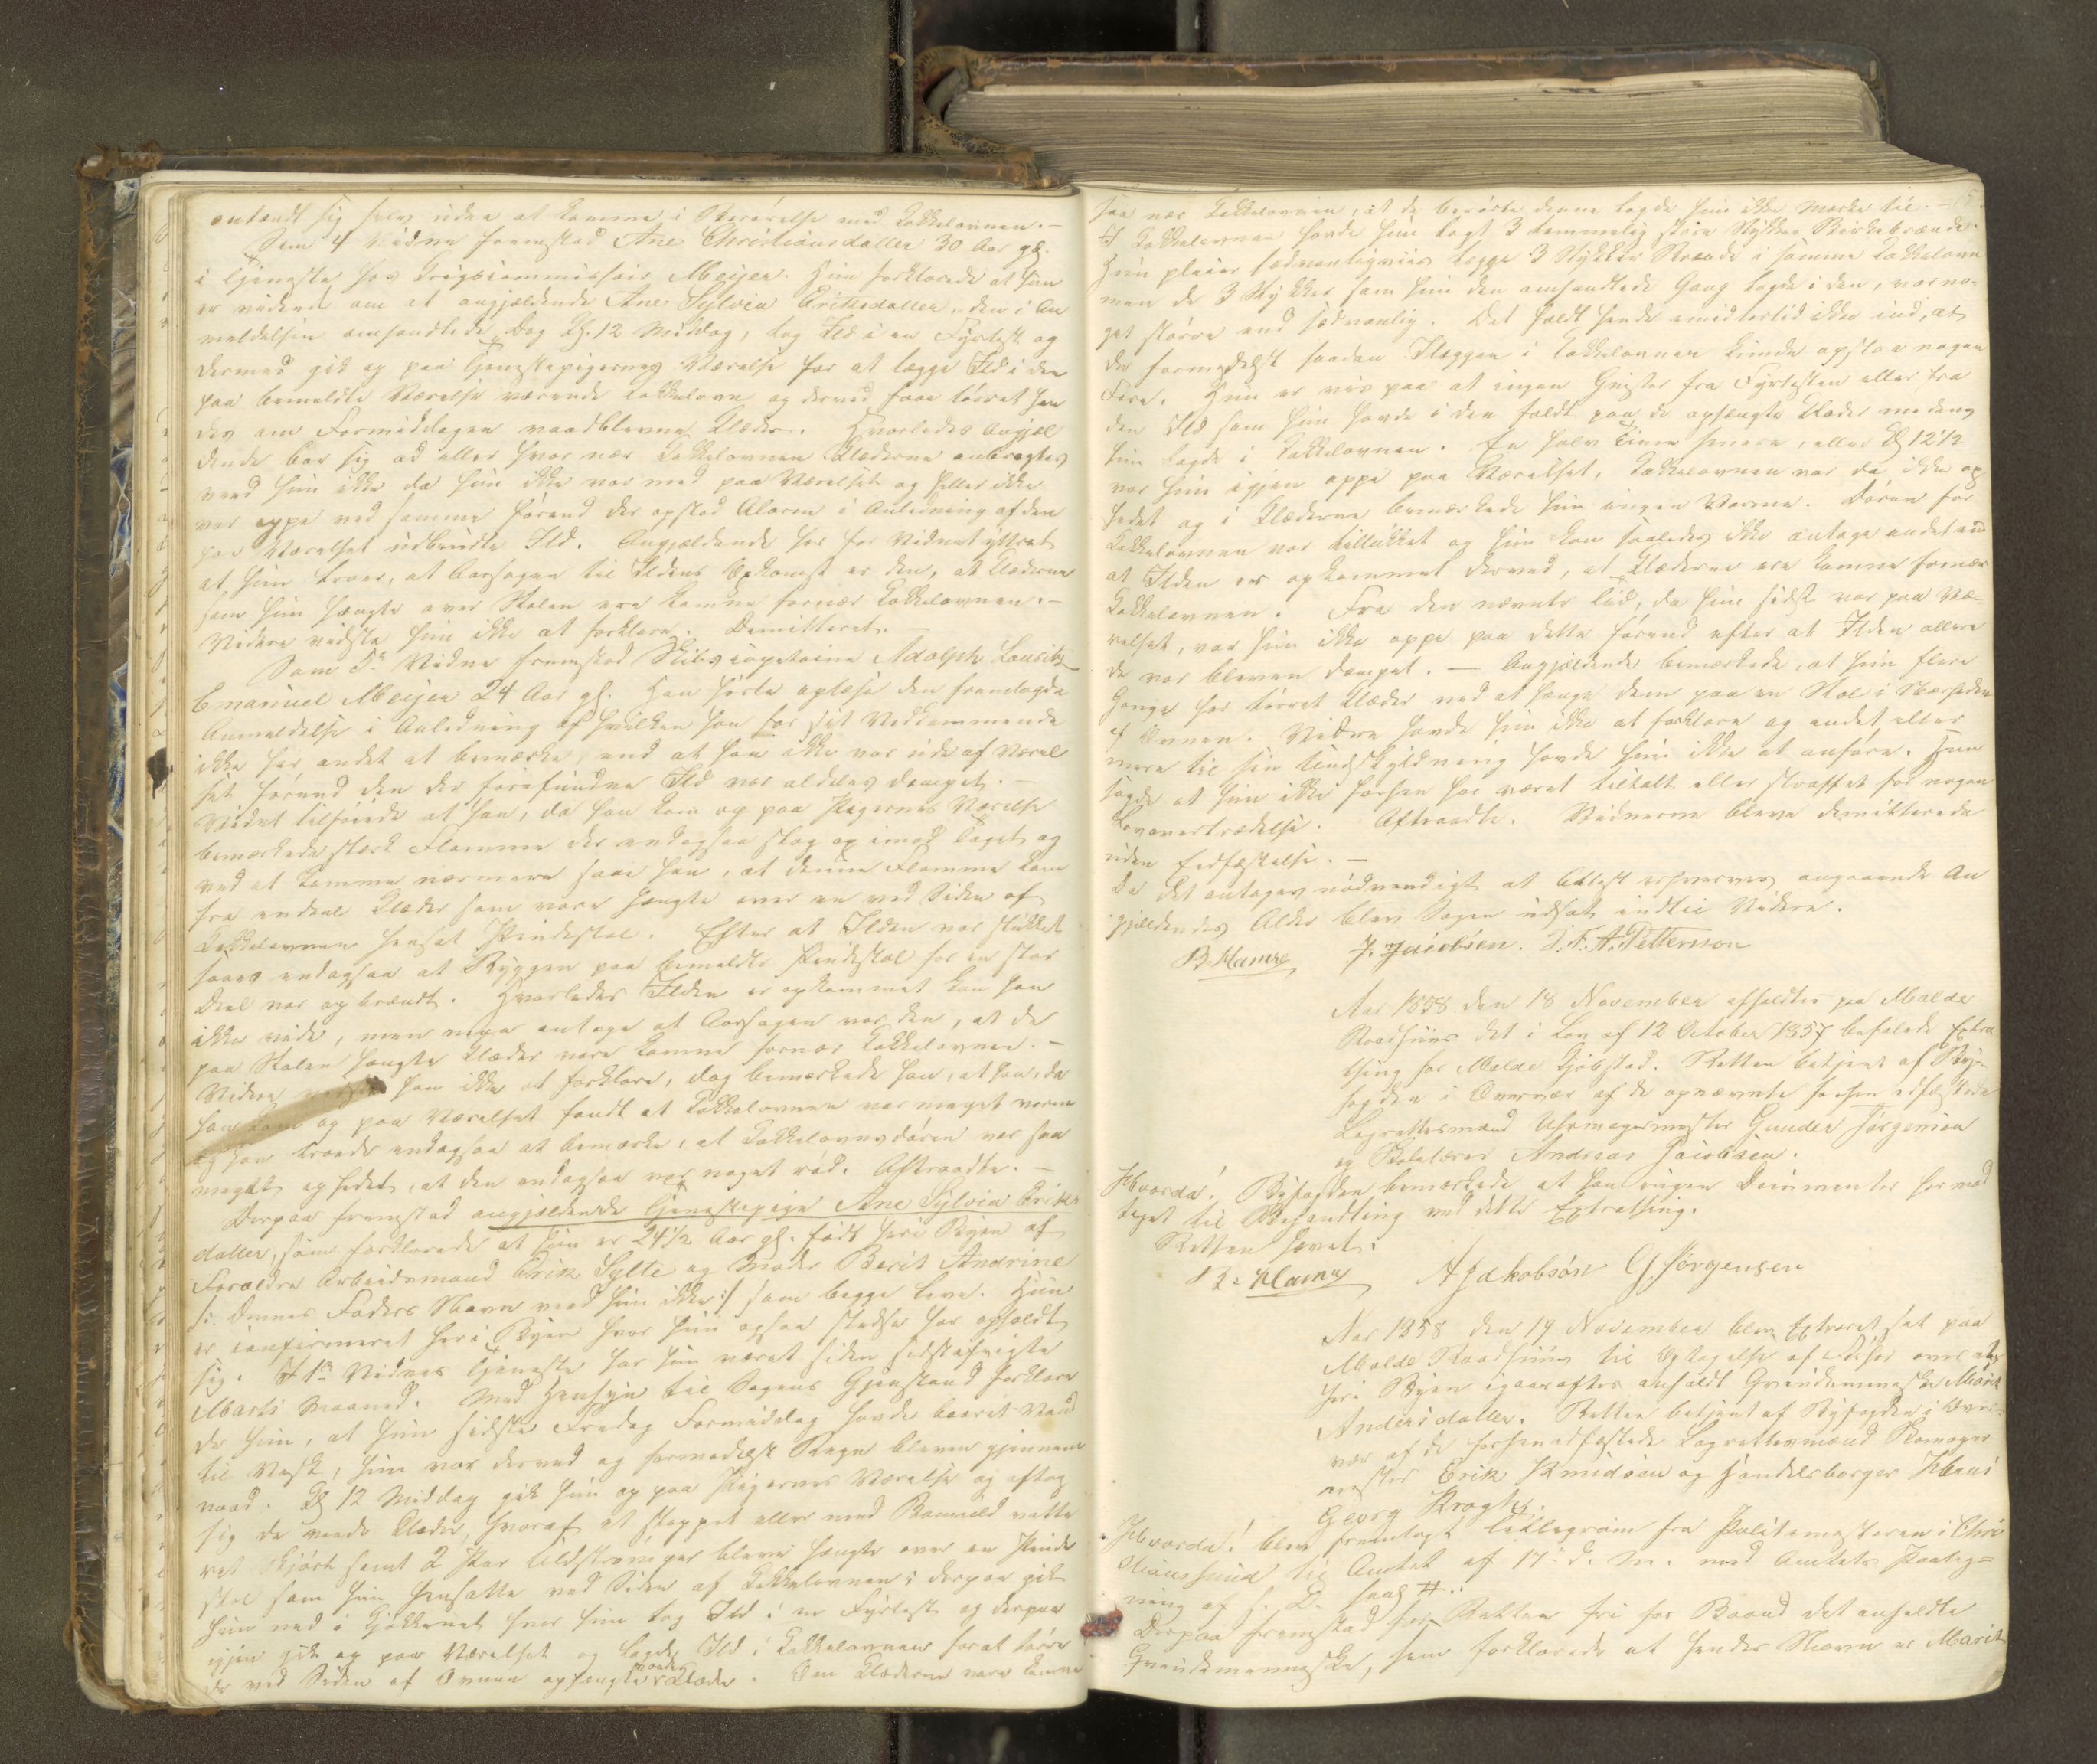 antændt sig selv uden at komme i Berørelse med Kakkelovnen. –
Som 4 Vidne fremstod Ane Christiansdatter 30 Aar gl.
i Tjeneste hos Krigscommissair Meijer. Hun forklarede at hun
er vidende om at angjældende Ane Sylvia Eriksdatter, den i An
meldelsen omhandlede Dag Kl. 12 Middag, tog Ild i en Fyrtest og
dermed gik op paa Tjenestepigernes Værelse for at lægge Ild i den
paa bemeldte Værelse værende Kakkelovn og derved faae tørret hen
des om Formiddagen vaadblevne Klæder. Hvorledes Angjæl
dende bar sig ad eller hvor nær Kakkelovnen Klæderne anbragtes
veed hun ikke da hun ikke var med paa Værelset og heller ikke
var oppe ved samme førend der opstod Alarm i Anledning af den
paa Værelset udbrudte Ild. Angjældende har for Vidnet yttret
at hun troer, at Aarsagen til Ildens Opkomst er den, at Klæderne
som hun hængte over Stolen ere komne fornær Kakkelovnen. –
Videre vidste hun ikke at forklare. Demitteret. –
Som 5te Vidne fremstod Skibscapitaine Adolph Lausitz
Emanuel Meijer 24 Aar gl. Han hørte oplæse den fremlagde
Anmeldelse i Anledning af hvilken han for sit Vedkommende
ikke har andet at bemærke, end at han ikke var ude af Værel
set førend den der forefundne Ild var aldeles dæmpet. –
Vidnet tilføiede at han, da han kom op paa Pigernes Værelse
bemærkede stærk Flamme der endogsaa slog op imod Taget og
ved at komme nærmere saae han, at denne Flamme kom
fra endeel Klæder som vare hængte over en ved Siden af
Kakkelovnen hensat Pindestol. Efter at Ilden var slukket
saaes endogsaa at Ryggen paa bemeldte Pindestol for en stor
Deel var opbrændt. Hvorledes Ilden er opkommet kan han
ikke vide, men maa antage at Aarsagen var den, at de
paa Stolen hængte Klæder vare komne fornær Kakkelovnen. –
Videre vidste han ikke at forklare, dog bemærkede han, at han, da
han kom op paa Værelset fandt at Kakkelovnen var meget varm
og han troede endogsaa at bemærke, at Kakkelovnsdøren var saa
meget ophedet, at den endogsaa var noget rød. Aftraadte. –
Derpaa fremstod angjældende Tjenestepige Ane Sylvia Eriks
datter, som forklarede at hun er 24½ Aar gl. født her i Byen af
Forældre Arbeidsmand Erik Sylte og Moder Berit Andrine
/: dennes Faders Navn veed hun ikke :/ som begge leve. Hun
er confirmeret her i Byen hvor hun ogsaa stedse har opholdt
sig. I 1ste Vidnes Tjeneste har hun været siden sidstafvigte
Marts Maaned. Med Hensyn til Sagens Gjenstand forklare
de hun, at hun sidste Fredag Formiddag havde baaret Vand
til Vask, hun var derved og formedelst Regn bleven gjennem
vaad. Kl 12 Middag gik hun op paa Pigernes Værelse og aftog
sig de vaade Klæder, hvoraf et stoppet eller med Bomuld vatte
ret Skjørt samt 2 Par Uldstrømper bleve hængte over en Pinde
stol som hun hensatte ved Siden af Kakkelovnen; derpaa gik
hun ned i Kjøkkenet hvor hun tog Ild i en Fyrtest og derpaa
igjen gik op paa Værelset og lagde Ild i Kakkelovnen forat tørre
de ved Siden af Ovnen ophængte vaade Klæder. Om Klæderne vare komne
saa nær Kakkelovnen, at de berørte denne lagde hun ikke Mærke til. –
I Kakkelovnen havde hun lagt 3 temmelig store Stykker Birkebrænde.
Hun pleier sædvanligviis lægge 3 Stykker Brænde i samme Kakkelovn
men de 3 Stykker som hun den omhandlede Gang lagde i den, var no-
get større end sædvanlig. Det faldt hende imidlertid ikke ind, at
der formedelst saadan Ilæggen i Kakkelovnen kunde opstaa nogen
Fare. Hun er vis paa at ingen Gnister fra Fyrtesten eller fra
den Ild som hun havde i den faldt paa de ophængte Klæder medens
hun lagde i Kakkelovnen. En halv Time senere, eller Kl 12½
var hun igjen oppe paa Værelset, Kakkelovnen var da ikke op
hedet og i Klæderne bemærkede hun ingen Varme. Døren for
Kakkelovnen var tillukket og hun kan saaledes ikke antage andet end
at Ilden er opkommet derved, at Klæderne ere komne fornær
Kakkelovnen. Fra den nævnte Tid, da hun sidst var paa Væ-
relset, var hun ikke oppe paa dette førend efter at Ilden allere
de var bleven dæmpet. – Angjældende bemærkede, at hun flere
Gange har tørret Klæder ved at hænge dem paa en Stol i Nærheden
af Ovnen. Videre havde hun ikke at forklare og andet eller
mere til sin Undskyldning havde hun ikke at anføre. Hun
sagde at hun ikke forhen har været tiltalt eller straffet for nogen
Lovovertrædelse. Aftraadte. Vidnerne bleve demitterede
uden Eedfæstelse. –
Da det antages nødvendigt at Attest erhverves angaaende An
gjældendes Alder blev Sagen udsat indtil Videre.
B. Hamre J. Jacobsen. J. F. A. Petterson
Aar 1858 den 18 November afholdtes paa Molde
Raadhuus det i Lov af 12 October 1857 befalede Extra
thing for Molde Kjøbstad. Retten betjent af By-
fogden i Overvær af de opnævnte forhen edfæstede
Lagrettesmænd Uhrmagermester Gunder Jørgensen
og Andreas Jacobsen.
Hvorda! Byfogden bemærkede at han ingen Documenter har mod
taget til Behandling ved dette Extrathing.
Retten hævet.
B. Hamre A Jakobsön G. Jörgensen
Aar 1858 den 19 November blev Extraret sat paa
Molde Raadhuus til Optagelse af Forhør over et
her i Byen igaaraftes anholdt Qvindemenneske Marit
Andersdatter. Retten betjent af Byfogden i Over-
vær af de forhen edfæstede Lagrettesmænd Skomager
mester Erik Knudsen og Handelsborger Hans
Georg Krogh.
Hvorda! blev fremlagt Tellegram fra Politimesteren i Chri
stianssund til Amtet af 17 d. M. med Amtets Paateg=
ning af s. D. saal. #.
Derpaa fremstod for Retten fri for Baand det anholdte
Qvindemenneske, som forklarede at hendes Navn er Marit